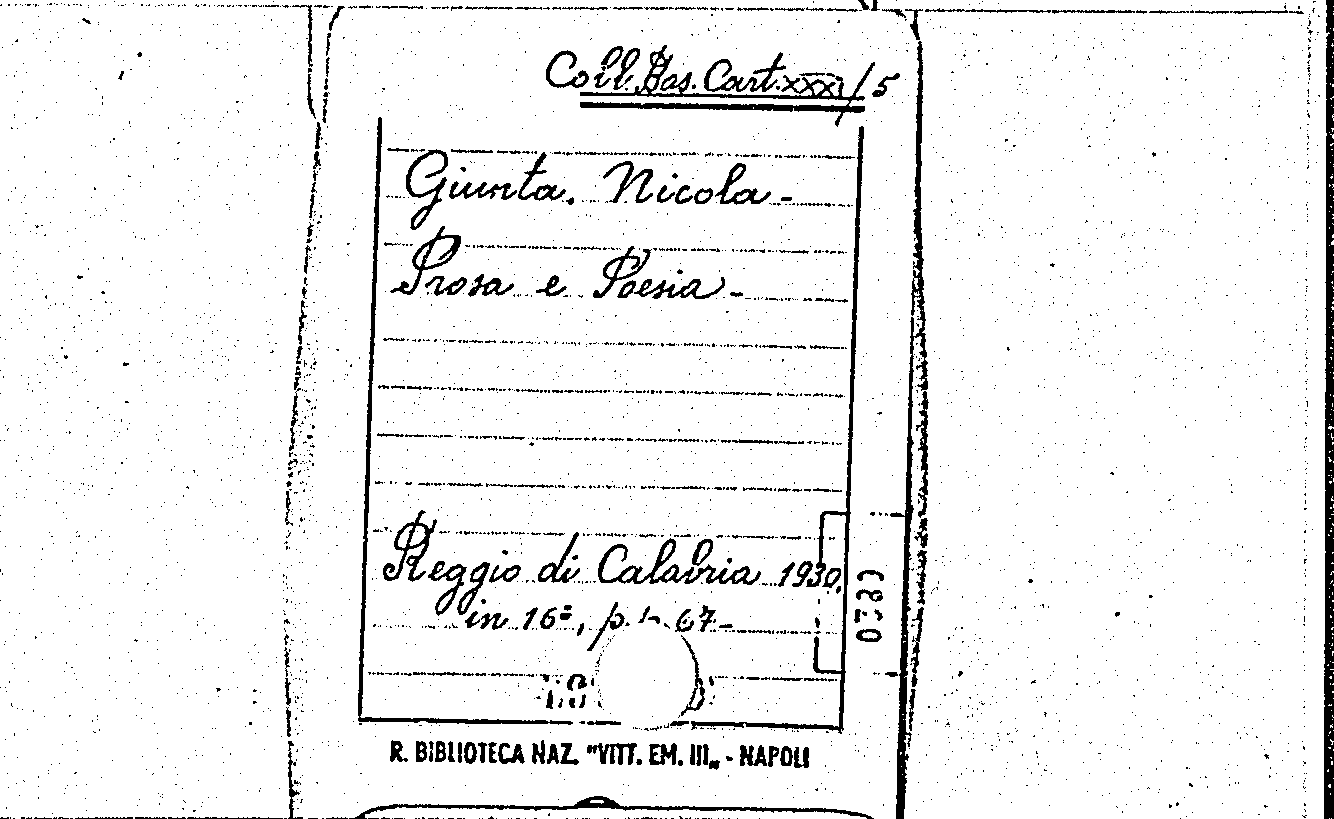 Coll. Bas. Cart. XXXI/5
Giunta. Nicola -
Prosa e Poesia -
Reggio di Calabria 1930.
in 16°, p. 67 -
R. BIBLIOTECA NAZ. "VITT. EM. III„ - NAPOLI